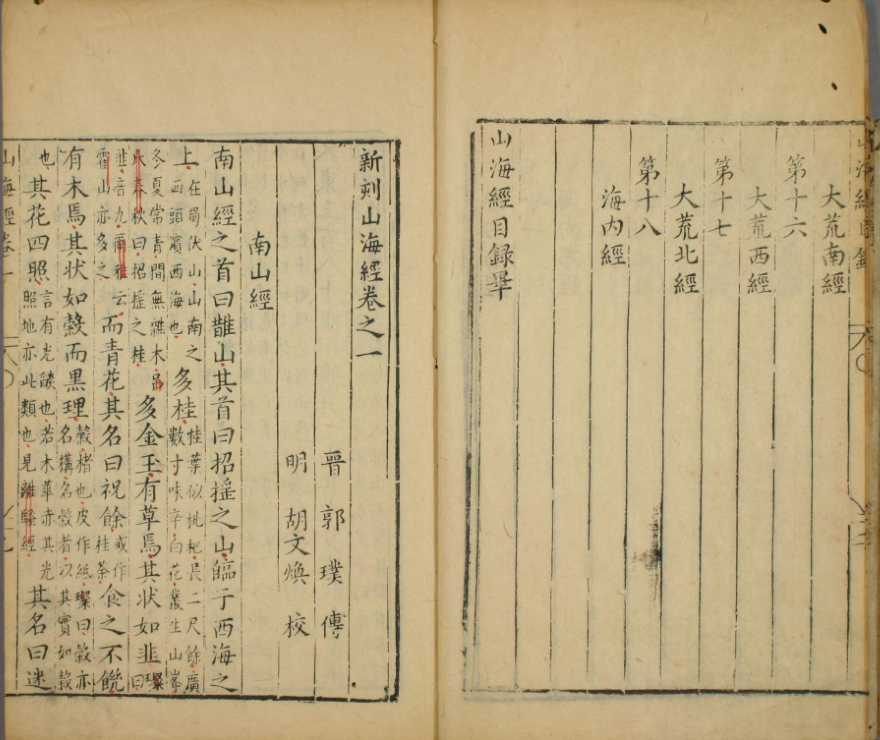 山海經目錄
大荒南經
第十六
大荒西經
第十七
大荒北經
第十八
海內經
山海經目錄畢
新刻山海經卷之一
晉郭璞傳
明胡文煥校
南山經
南山經之首曰䧿山其首曰招搖之山臨于西海之
上在蜀伏山山南之西頭濱西海也多桂桂葉似枇杷長二尺餘廣數寸味辛白花叢生山峯
冬夏常青間無雜木呂氏春秋曰招搖之桂多金玉有草焉其狀如韭璨曰
韭音九爾雅云霍山亦多之而青花其名曰祝餘或作桂荼食之不饑
有木焉其狀如榖而黑理榖楮也皮作紙璨曰榖亦名構名榖者以其實如榖
也其花四照言有光燄也若木華赤其光照地亦此類也見離騷經其名曰迷
山海經卷一